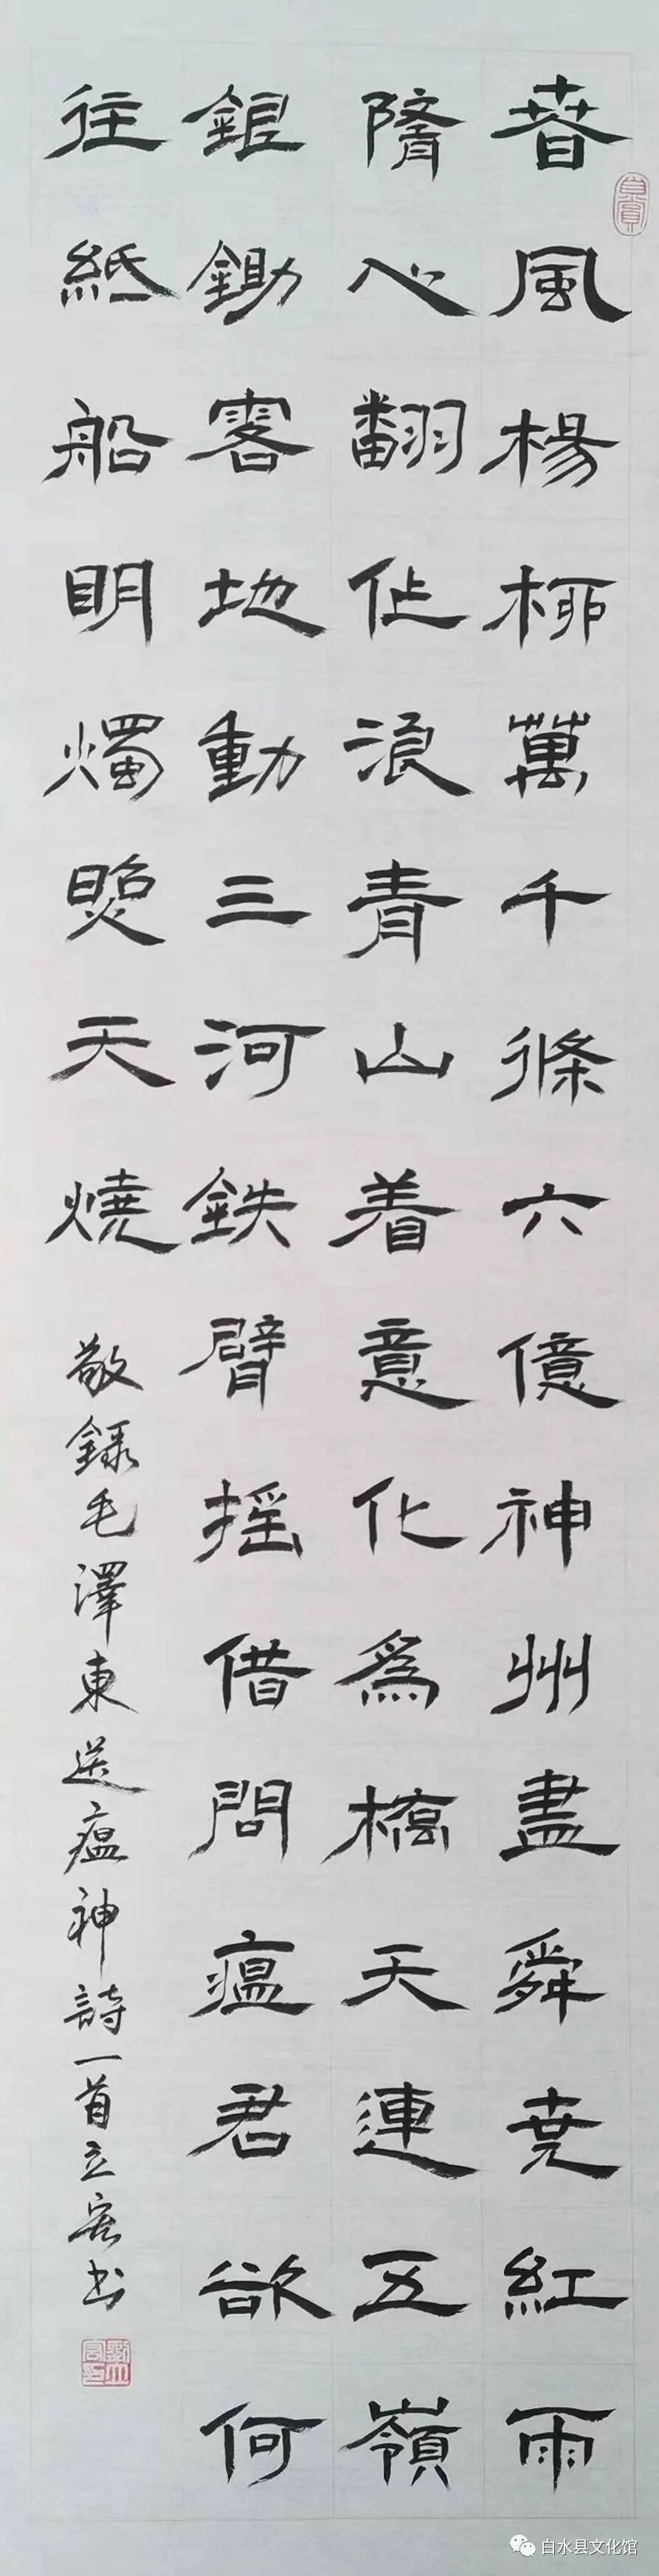 春風楊柳萬千條六億神州盡舜堯紅雨
隋心翻作浪青山着意化為橋天連五嶺
銀鋤落地動三河鉄臂摇借問瘟君欲何
往紙船明燭照天燒
敬錄毛澤東送瘟神詩一首立宏书
白水县文化馆